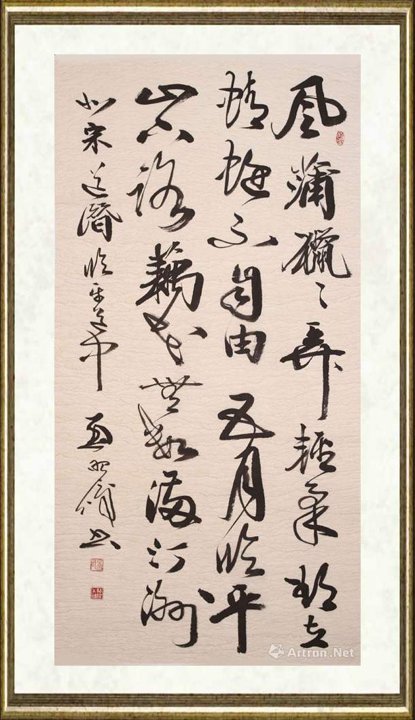 風蒲獵〻弄輕柔欲立
蜻蜓不自由五月臨平
山下路藕花無數滿汀洲
北宋道潛臨平道中
書
Artron.Net